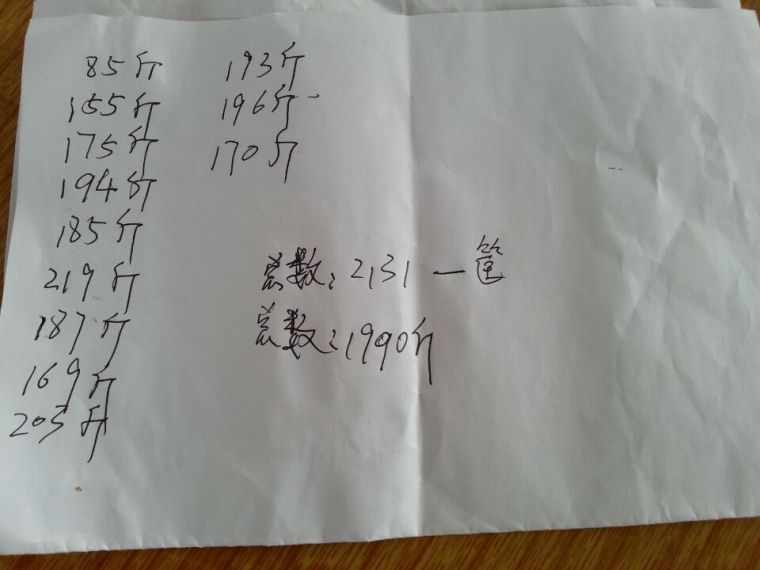 85斤
155斤
175斤
194斤
185斤
219斤
187斤
169斤
203斤
193斤
196斤
170斤
总数:2131 一筐
总数:1990斤